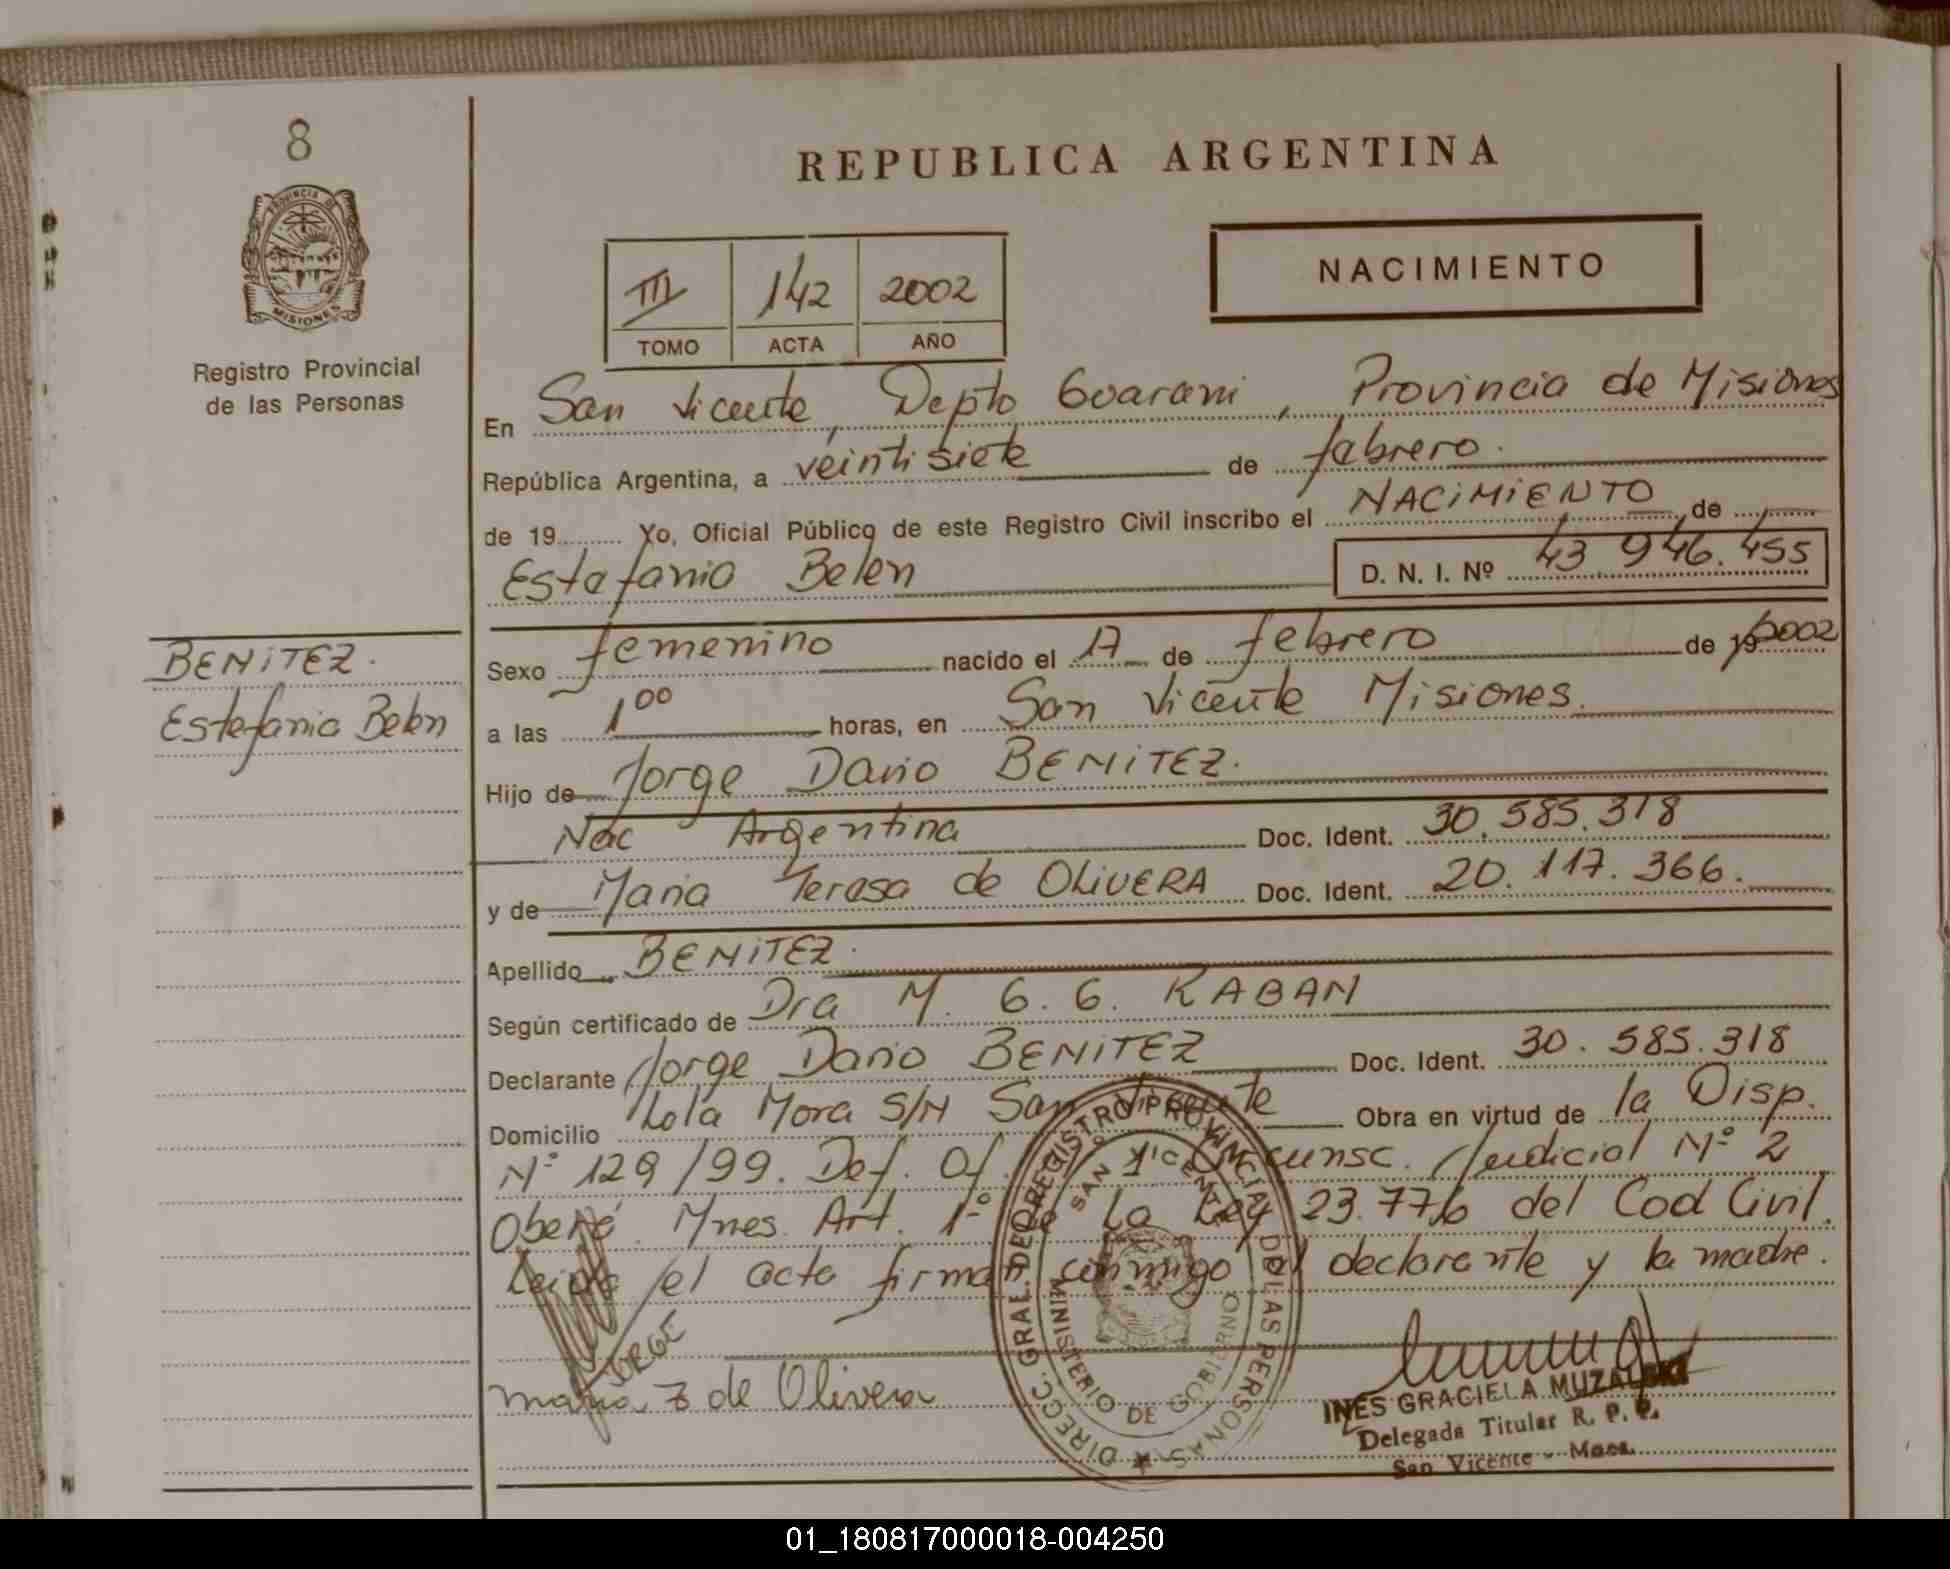 8
PROVINCIA DE
MISIONES
Registro Provincial
de las Personas
BENITEZ.
Estefania Belen
REPUBLICA ARGENTINA
NACIMIENTO
III 142 2002
TOMO ACTA AÑO
En San Vicente, Depto Guarani, Provincia de Misiones
República Argentina, a veintisiete de febrero.
de 19 Yo, Oficial Público de este Registro Civil inscribo el NACIMIENTO de
Estefania Belen D. N. I. Nº 43.946.455
Sexo femenino nacido el 17 de febrero de 19 2002
a las 1 00 horas, en San Vicente Misiones.
Hijo de Jorge Dario BENITEZ.
Nac Argentina Doc. Ident. 30.585.318
y de Maria Teresa de OLIVERA Doc. Ident. 20.117.366.
Apellido BENITEZ.
Según certificado de Dra M. G. G. KABAN
Declarante Jorge Dario BENITEZ Doc. Ident. 30.585.318
Domicilio Lola Mora S/N San Vicente Obra en virtud de la Disp.
Nº 129/99. Def. Of. 1º Circunsc. Judicial Nº 2
Oberá Mnes. Art. 1º de la Ley 23.776 del Cod Civil.
Leida el acta firman conmigo el declarante y la madre.
JORGE
maria T de Olivera
DIRECC. GRAL. DEL REGISTRO PROVINCIAL DE LAS PERSONAS
SAN VICENTE
MINISTERIO DE GOBIERNO
INES GRACIELA MUZALSKI
Delegada Titular R. P. P.
San Vicente - Mnes.
01_180817000018-004250